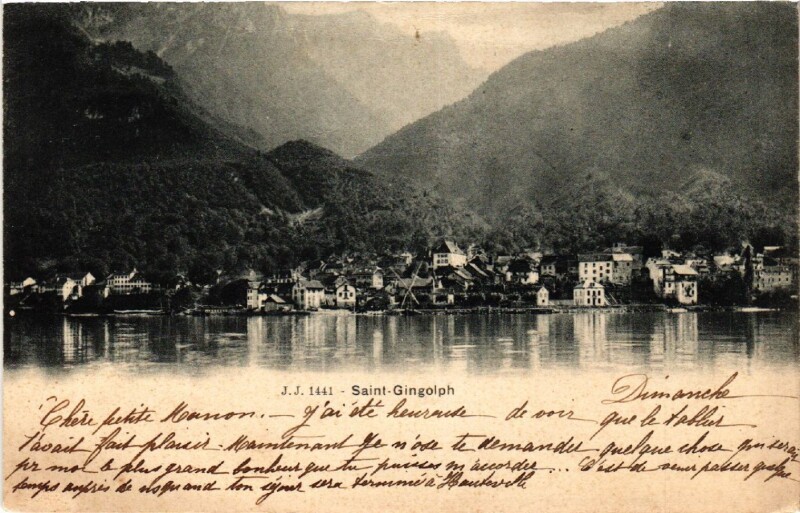 J.J. 1441 - Saint-Gingolph
Dimanche
Chère petite Manon. — J'ai été heureuse de voir que le tablier
t'avait fait plaisir. Maintenant Je n'ose te demander quelque chose qui serait
pr moi le plus grand bonheur que tu puisses m'accorder... C'est de venir passer quelque
temps auprès de nous quand ton séjour sera terminé à Hauteville